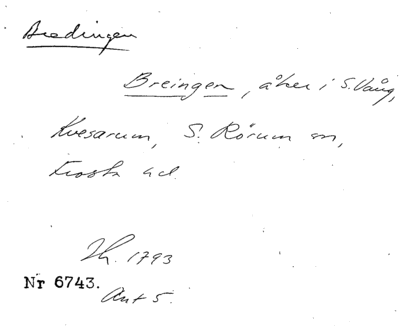 Bredingen
Breingen, åker i S. Vång,
Kvesarum, S. Rörum sn,
Frosta hd.
Lh. 1793
Nr 6743.
Akt 5.